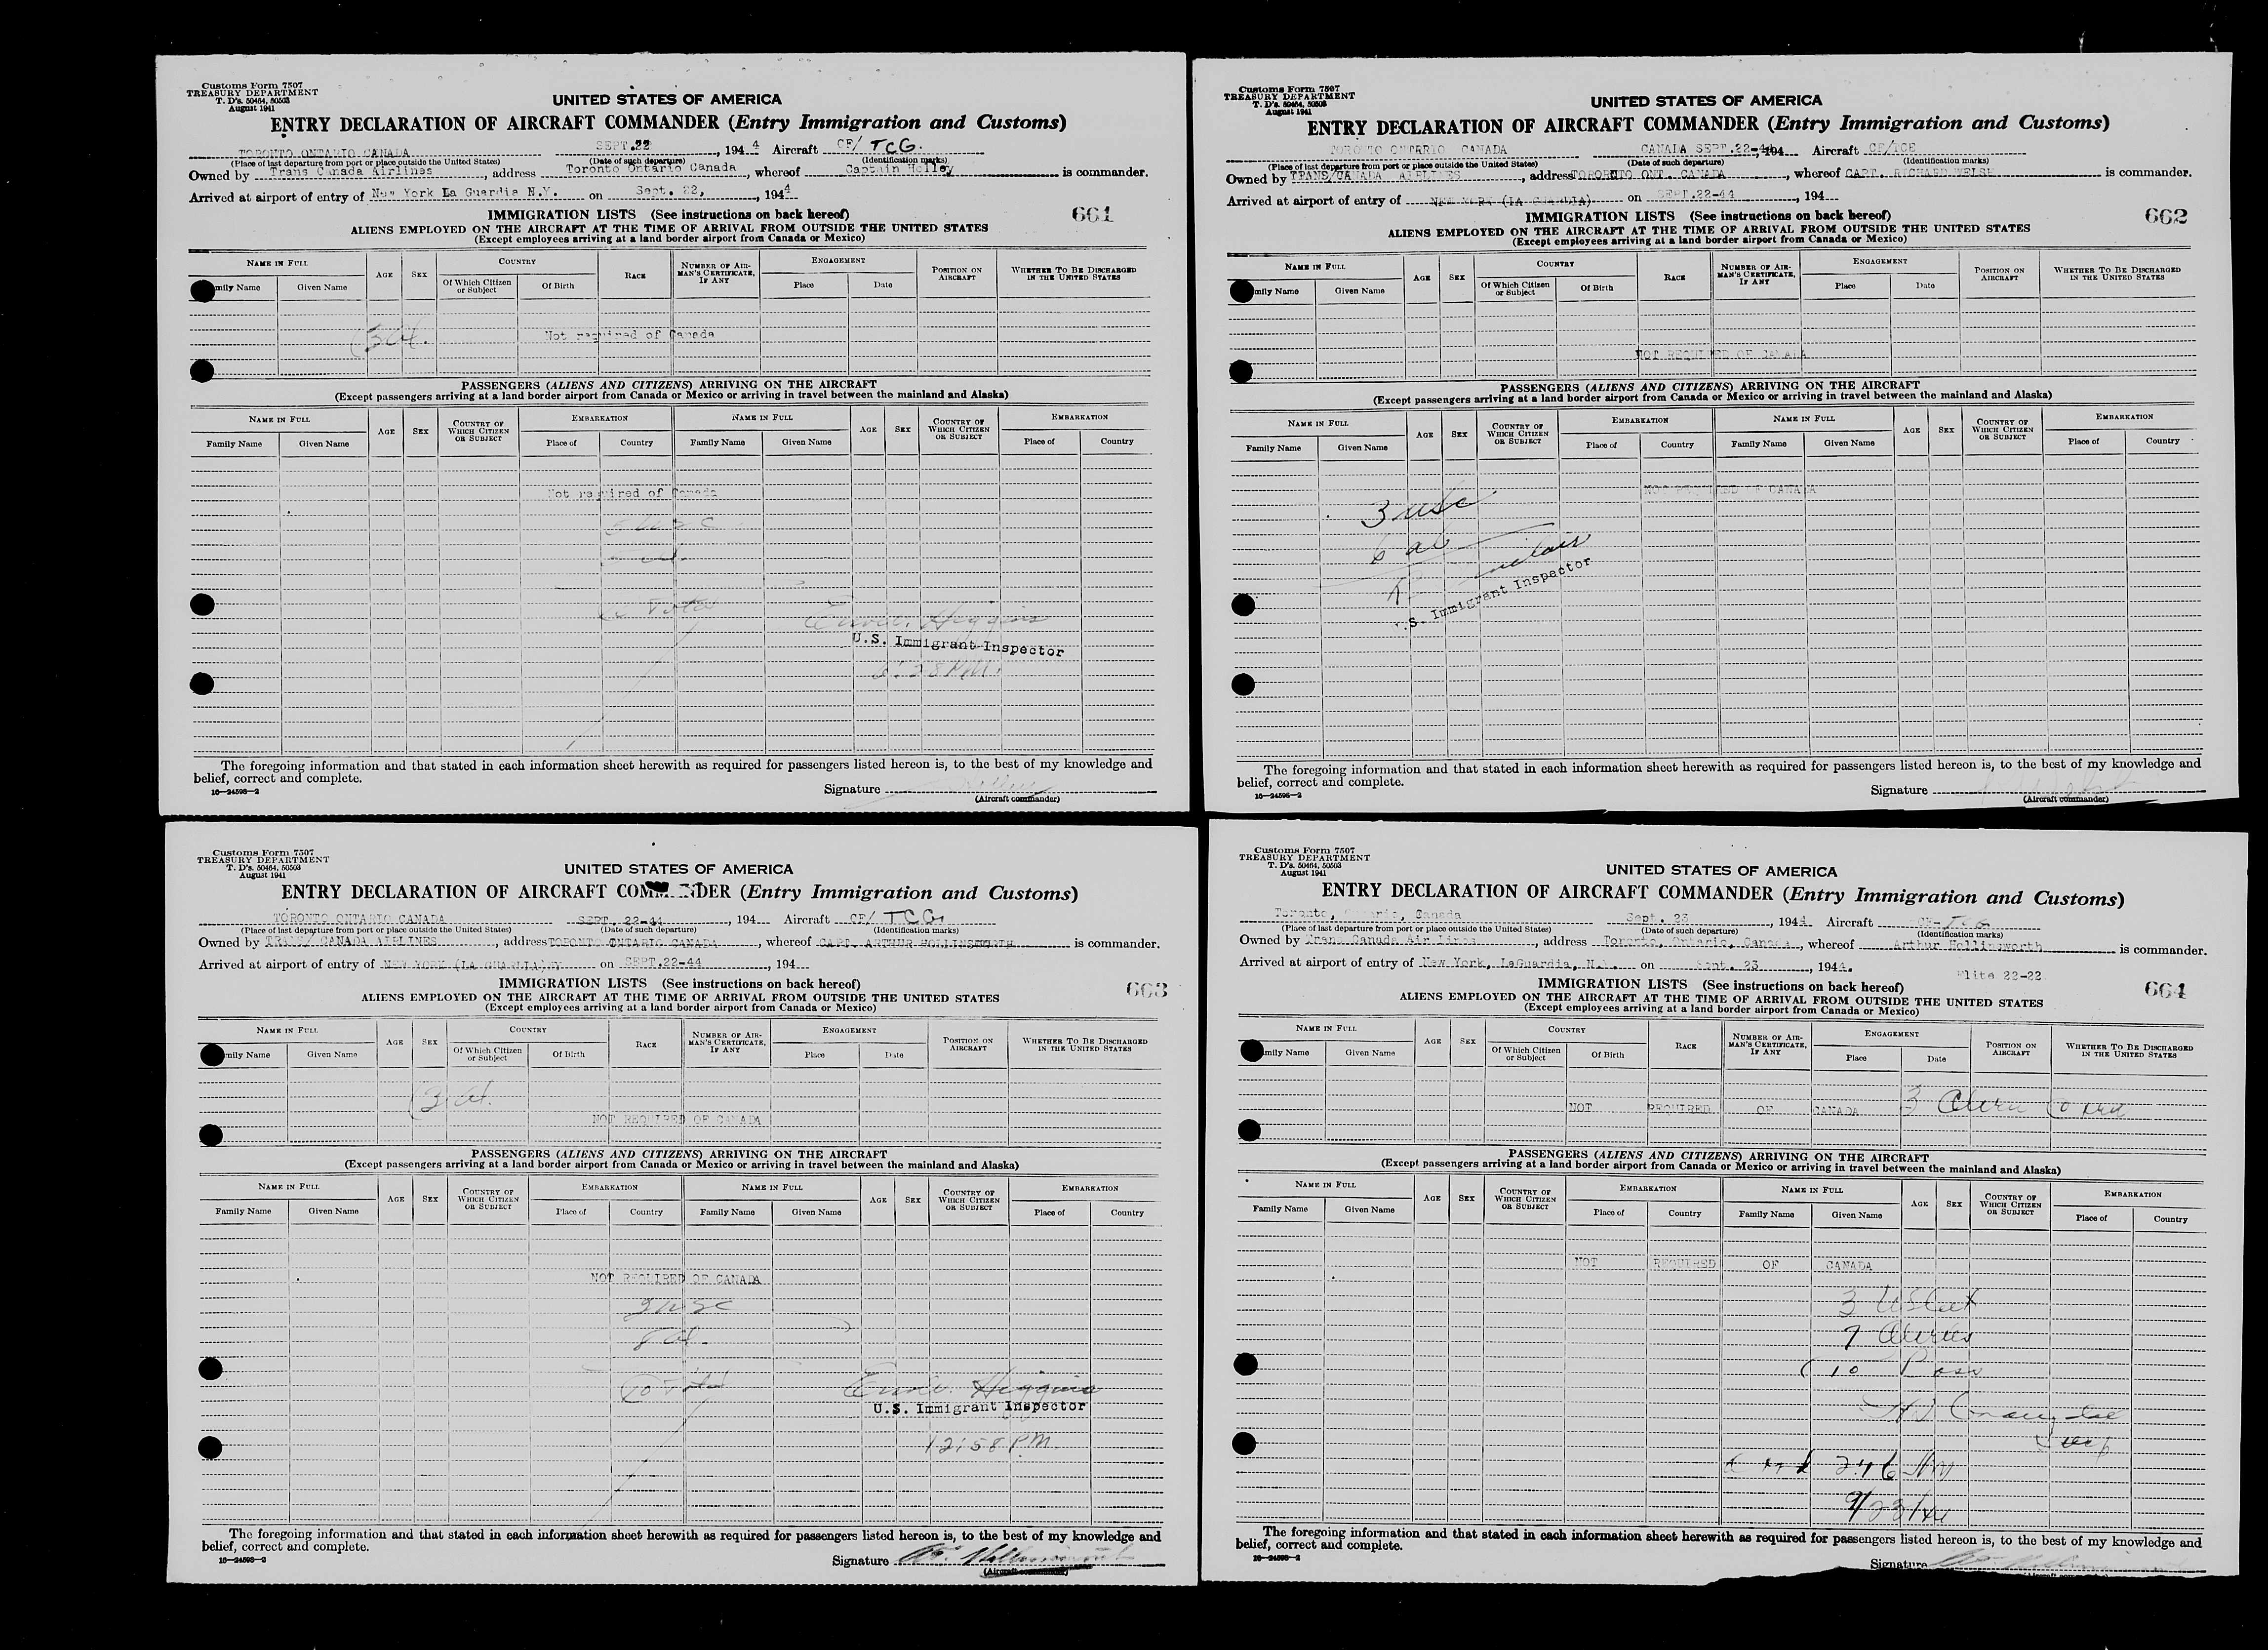 Customs Form 7507
TREASURY DEPARTMENT
T. D's. 50464, 50503
August 1941
UNITED STATES OF AMERICA
ENTRY DECLARATION OF AIRCRAFT COMMANDER (Entry Immigration and Customs)
TORONTO ONTARIO CANADA SEPT.22, 1944 Aircraft CF/ TCG.
(Place of last departure from port or place outside the United States) (Date of such departure) (Identification marks)
Owned by Trans Canada Airlines, address Toronto Ontario Canada, whereof Captain Holley is commander.
Arrived at airport of entry of New York La Guardia N.Y. on Sept. 22, 1944
IMMIGRATION LISTS (See instructions on back hereof)
661
ALIENS EMPLOYED ON THE AIRCRAFT AT THE TIME OF ARRIVAL FROM OUTSIDE THE UNITED STATES
(Except employees arriving at a land border airport from Canada or Mexico)
NAME IN FULL AGE SEX COUNTRY RACE NUMBER OF AIRMAN'S CERTIFICATE, IF ANY ENGAGEMENT POSITION ON AIRCRAFT WHETHER TO BE DISCHARGED IN THE UNITED STATES
mily Name Given Name Of Which Citizen or Subject Of Birth Place Date
Not required of Canada
PASSENGERS (ALIENS AND CITIZENS) ARRIVING ON THE AIRCRAFT
(Except passengers arriving at a land border airport from Canada or Mexico or arriving in travel between the mainland and Alaska)
NAME IN FULL AGE SEX COUNTRY OF WHICH CITIZEN OR SUBJECT EMBARKATION NAME IN FULL AGE SEX COUNTRY OF WHICH CITIZEN OR SUBJECT EMBARKATION
Family Name Given Name Place of Country Family Name Given Name Place of Country
Not required of Canada
Total
Higgins
U.S. Immigrant Inspector
The foregoing information and that stated in each information sheet herewith as required for passengers listed hereon is, to the best of my knowledge and
belief, correct and complete.
16—24598—2
Signature
(Aircraft commander)
Customs Form 7507
TREASURY DEPARTMENT
T. D's. 50464, 50503
August 1941
UNITED STATES OF AMERICA
ENTRY DECLARATION OF AIRCRAFT COMMANDER (Entry Immigration and Customs)
TORONTO ONTARIO CANADA CANADA SEPT.22-44, 194 Aircraft CF/TCE
(Place of last departure from port or place outside the United States) (Date of such departure) (Identification marks)
Owned by TRANS/CANADA AIRLINES, address TORONTO ONT. CANADA, whereof CAPT. RICHARD WELSH is commander.
Arrived at airport of entry of NEW YORK (LA GUARDIA) on SEPT.22-44, 194
IMMIGRATION LISTS (See instructions on back hereof)
662
ALIENS EMPLOYED ON THE AIRCRAFT AT THE TIME OF ARRIVAL FROM OUTSIDE THE UNITED STATES
(Except employees arriving at a land border airport from Canada or Mexico)
NAME IN FULL AGE SEX COUNTRY RACE NUMBER OF AIRMAN'S CERTIFICATE, IF ANY ENGAGEMENT POSITION ON AIRCRAFT WHETHER TO BE DISCHARGED IN THE UNITED STATES
mily Name Given Name Of Which Citizen or Subject Of Birth Place Date
NOT REQUIRED OF CANADA
PASSENGERS (ALIENS AND CITIZENS) ARRIVING ON THE AIRCRAFT
(Except passengers arriving at a land border airport from Canada or Mexico or arriving in travel between the mainland and Alaska)
NAME IN FULL AGE SEX COUNTRY OF WHICH CITIZEN OR SUBJECT EMBARKATION NAME IN FULL AGE SEX COUNTRY OF WHICH CITIZEN OR SUBJECT EMBARKATION
Family Name Given Name Place of Country Family Name Given Name Place of Country
NOT REQUIRED OF CANADA
3 usc
6 al
.S. Immigrant Inspector
The foregoing information and that stated in each information sheet herewith as required for passengers listed hereon is, to the best of my knowledge and
belief, correct and complete.
16—24598—2
Signature
(Aircraft commander)
Customs Form 7507
TREASURY DEPARTMENT
T. D's. 50464, 50503
August 1941
UNITED STATES OF AMERICA
ENTRY DECLARATION OF AIRCRAFT COMMANDER (Entry Immigration and Customs)
TORONTO ONTARIO CANADA SEPT. 22-44, 194 Aircraft CF/ TCG
(Place of last departure from port or place outside the United States) (Date of such departure) (Identification marks)
Owned by TRANS/ CANADA AIRLINES, address TORONTO ONTARIO CANADA, whereof CAPT. ARTHUR HOLLINSWORTH is commander.
Arrived at airport of entry of NEW YORK (LA GUARDIA)NY on SEPT.22-44, 194
IMMIGRATION LISTS (See instructions on back hereof)
663
ALIENS EMPLOYED ON THE AIRCRAFT AT THE TIME OF ARRIVAL FROM OUTSIDE THE UNITED STATES
(Except employees arriving at a land border airport from Canada or Mexico)
NAME IN FULL AGE SEX COUNTRY RACE NUMBER OF AIRMAN'S CERTIFICATE, IF ANY ENGAGEMENT POSITION ON AIRCRAFT WHETHER TO BE DISCHARGED IN THE UNITED STATES
mily Name Given Name Of Which Citizen or Subject Of Birth Place Date
3 al.
NOT REQUIRED OF CANADA
PASSENGERS (ALIENS AND CITIZENS) ARRIVING ON THE AIRCRAFT
(Except passengers arriving at a land border airport from Canada or Mexico or arriving in travel between the mainland and Alaska)
NAME IN FULL AGE SEX COUNTRY OF WHICH CITIZEN OR SUBJECT EMBARKATION NAME IN FULL AGE SEX COUNTRY OF WHICH CITIZEN OR SUBJECT EMBARKATION
Family Name Given Name Place of Country Family Name Given Name Place of Country
NOT REQUIRED OF CANADA
10 Total
Higgins
U.S. Immigrant Inspector
12:58 PM.
The foregoing information and that stated in each information sheet herewith as required for passengers listed hereon is, to the best of my knowledge and
belief, correct and complete.
16—24598—2
Signature
(Aircraft commander)
Customs Form 7507
TREASURY DEPARTMENT
T. D's. 50464, 50503
August 1941
UNITED STATES OF AMERICA
ENTRY DECLARATION OF AIRCRAFT COMMANDER (Entry Immigration and Customs)
Toronto, Ontario, Canada Sept. 23, 1944 Aircraft CF-
(Place of last departure from port or place outside the United States) (Date of such departure) (Identification marks)
Owned by Trans Canada Air Lines, address Toronto, Ontario, Canada, whereof Arthur Hollinsworth is commander.
Arrived at airport of entry of New York, LaGuardia, N.Y. on Sept. 23, 1944.
Flite 22-22
IMMIGRATION LISTS (See instructions on back hereof)
664
ALIENS EMPLOYED ON THE AIRCRAFT AT THE TIME OF ARRIVAL FROM OUTSIDE THE UNITED STATES
(Except employees arriving at a land border airport from Canada or Mexico)
NAME IN FULL AGE SEX COUNTRY RACE NUMBER OF AIRMAN'S CERTIFICATE, IF ANY ENGAGEMENT POSITION ON AIRCRAFT WHETHER TO BE DISCHARGED IN THE UNITED STATES
mily Name Given Name Of Which Citizen or Subject Of Birth Place Date
NOT REQUIRED OF CANADA 3 Alien
PASSENGERS (ALIENS AND CITIZENS) ARRIVING ON THE AIRCRAFT
(Except passengers arriving at a land border airport from Canada or Mexico or arriving in travel between the mainland and Alaska)
NAME IN FULL AGE SEX COUNTRY OF WHICH CITIZEN OR SUBJECT EMBARKATION NAME IN FULL AGE SEX COUNTRY OF WHICH CITIZEN OR SUBJECT EMBARKATION
Family Name Given Name Place of Country Family Name Given Name Place of Country
NOT REQUIRED OF CANADA
3 US Cit
7 Aliens
(10 Pass
2:46 AM
9/23/44
The foregoing information and that stated in each information sheet herewith as required for passengers listed hereon is, to the best of my knowledge and
belief, correct and complete.
16—24598—2
Signature